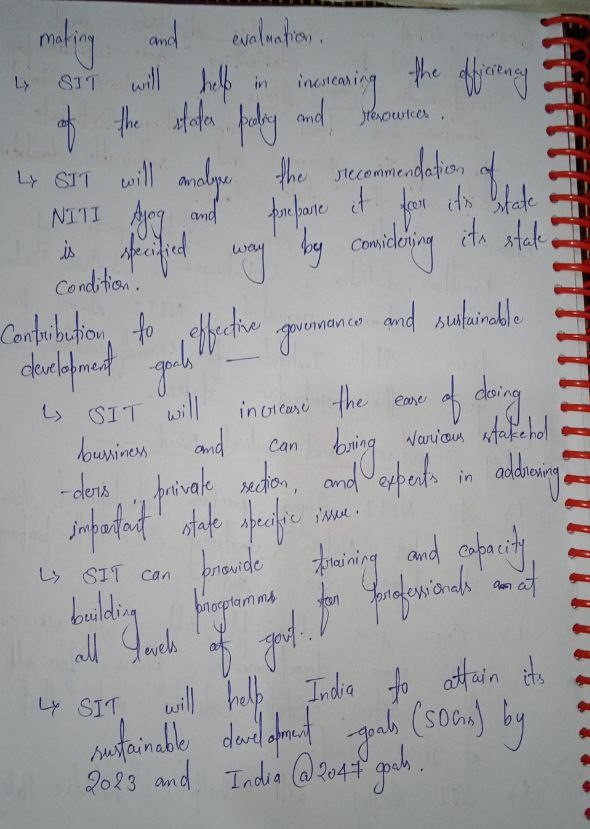 making and evaluation.
↳ SIT will help in increasing the efficiency
of the states policy and resources.
↳ SIT will analyse the recommendation of
NITI Ayog and prepare it for its state
is specified way by considering its state
condition.
Contribution to effective governance and sustainable
development goals —
↳ SIT will increase the ease of doing
bussiness and can bring various stakehol
-ders, private section, and experts in addressing
important state specific issue.
↳ SIT can provide training and capacity
building programms for professionals at
all levels of govt..
↳ SIT will help India to attain its
sustainable development goals (SDGs) by
2023 and India @2047 goals.